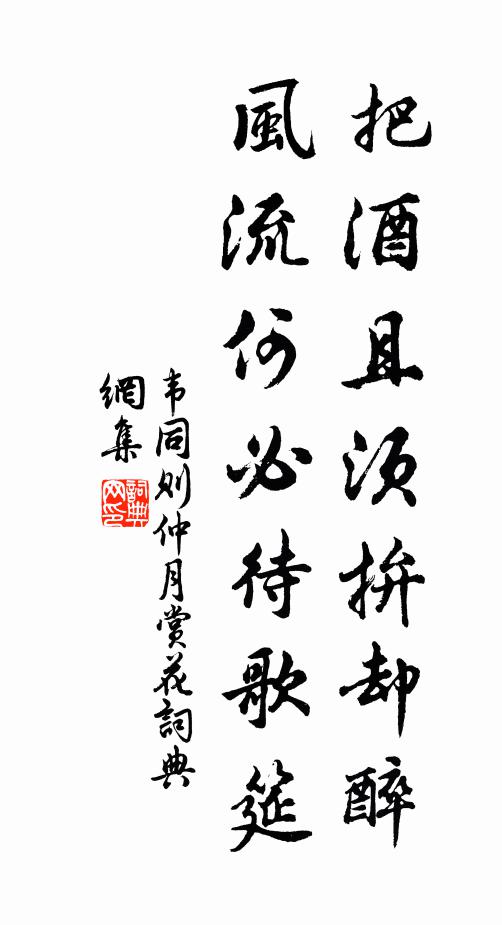 把酒且须拚却醉
風流何必待歌筵
韦同则仲月赏花詞典
網集
詞典网印